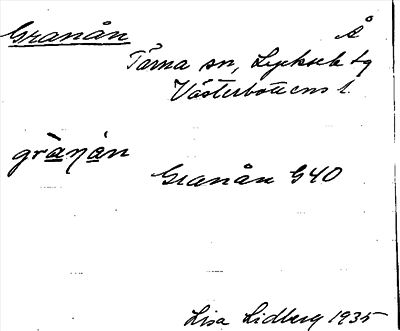 Granån Å
Tärna sn, Lycksele tg
Västerbottens l.
grànán
Granån G40
Lisa Lidberg 1935